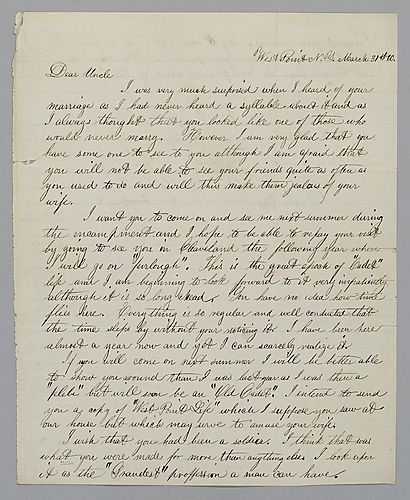 West Point N.Y. March 31st
Dear Uncle
I was very much surprised when I heard of your
marriage as I had never heard a syllable about it and as
I always thought that you looked like one of those who
would never marry. However I am very glad that you
have some one to see to you although I am afraid that
you will not be able to see your friends quite as often as
you used to do and will thus make them jealous of your
wife.
I want you to come on and see me next summer during
the encampment and I hope to be able to repay your visit
by going to see you in Cleaveland the following year when
I will go on "furlough". This is the great epoch of "Cadet"
life and I am beginning to look forward to it very impatiently
although it is so long ahead. You have no idea how time
flies here. Everything is so regular and well conducted that
the time slips by without your noticing it. I have been here
almost a year now and yet I can scarcely realize it.
If you will come on next summer I will be better able
to show you around than I was last year as I was then a
"plebe" but will soon be an "Old Cadet". I intend to send
you a copy of "West Point Life" which I suppose you saw at
our house but which may serve to amuse your wife.
I wish that you had been a soldier. I think that was
what you were made for more than anything else. I look upon
it as the "Grandest" proffession a man can have.